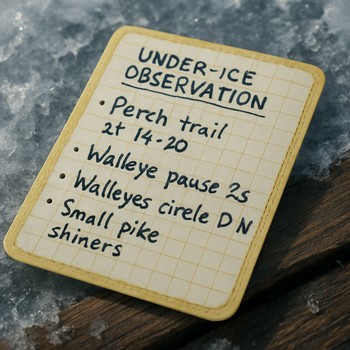 UNDER-ICE
OBSERVATION
• Perch trail
2t 14-20
• Walleye pause 2s
• Walleyes cirele D N
• Small pike
shiners